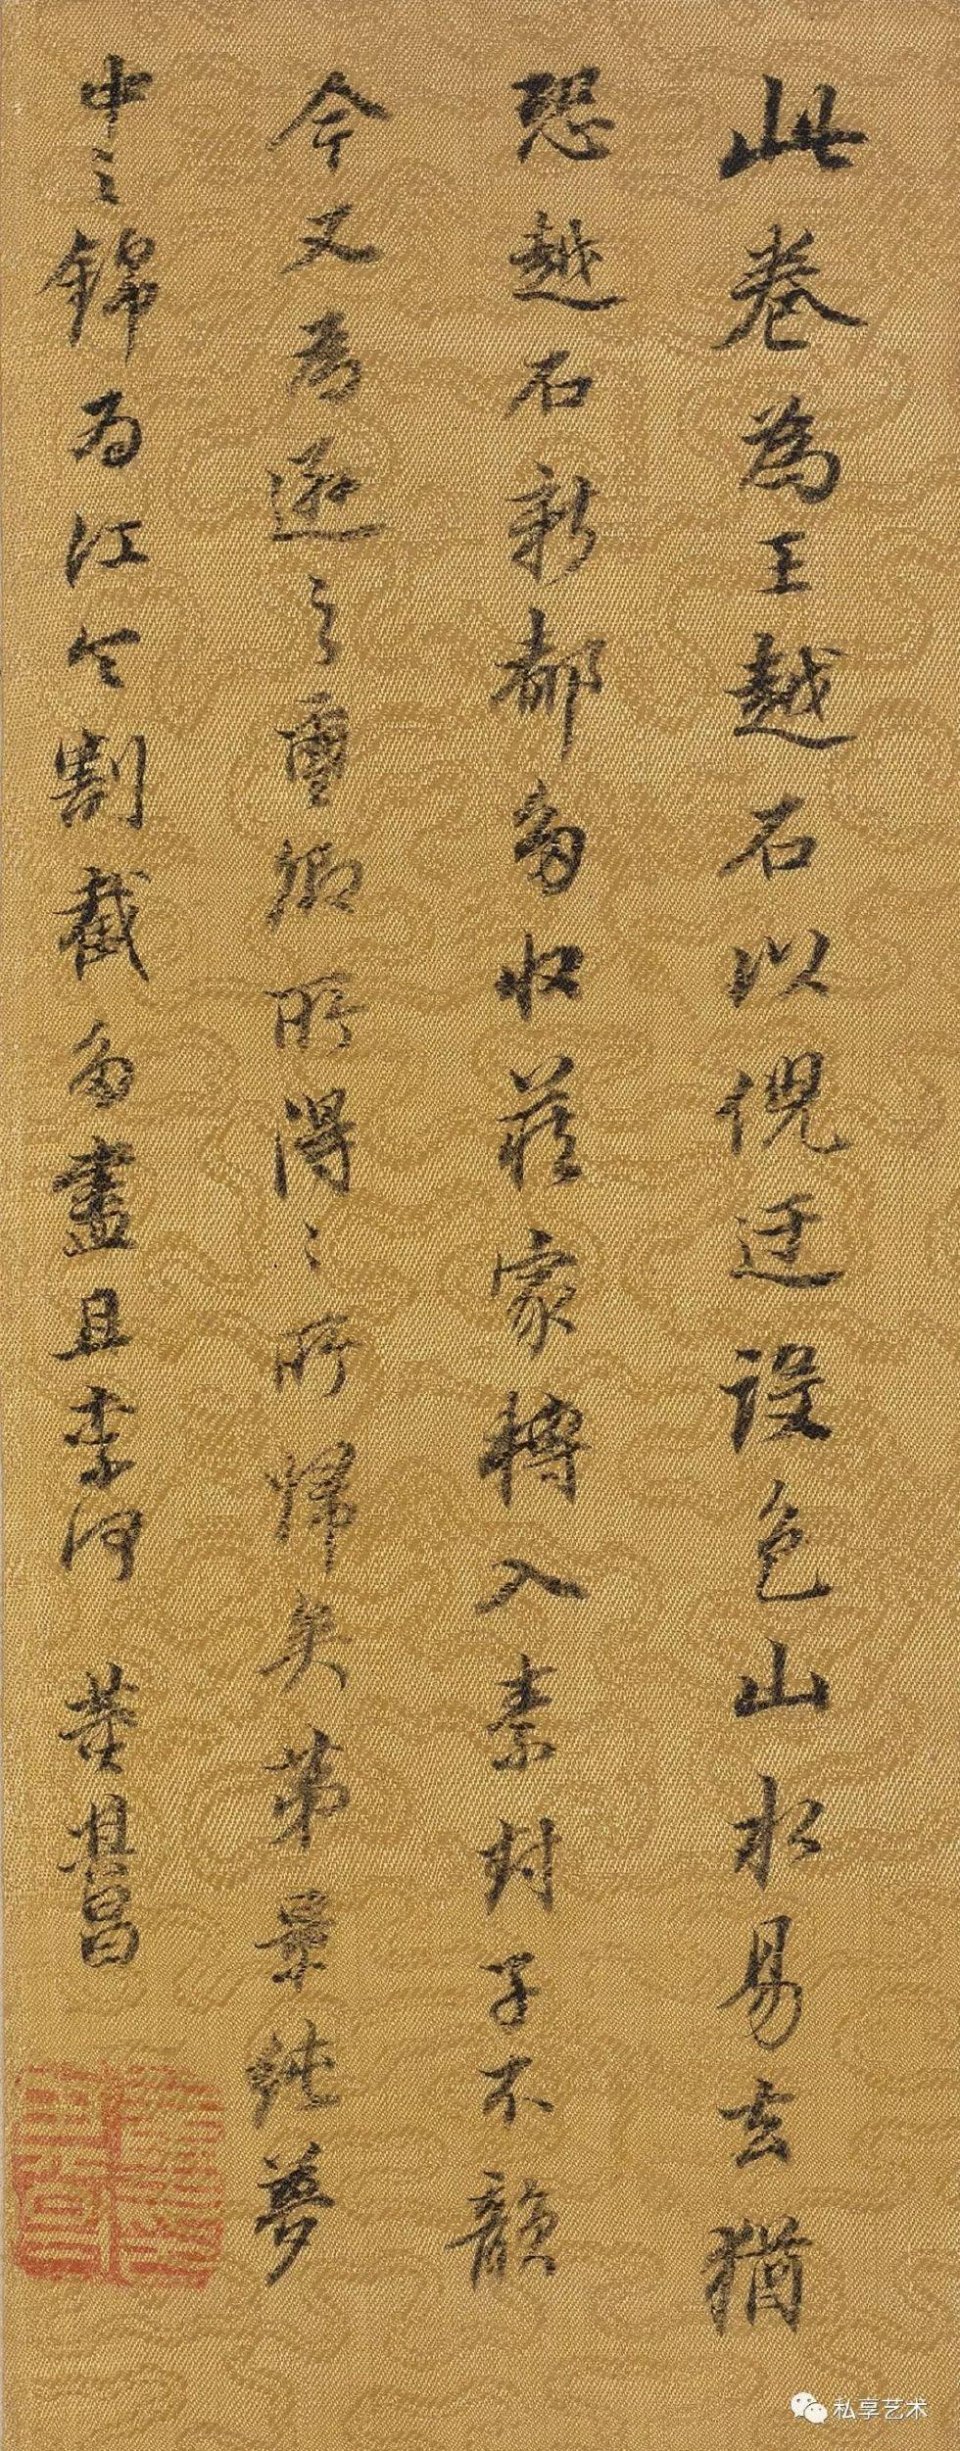 此卷為王越石以倪迂设色山水易去猶
恐越石新都多收藏家轉入素封子不韻
今又為遜之璽卿所得得所歸矣第景純夢
中之錦為江令割截多盡且柰何 董其昌
私享艺术